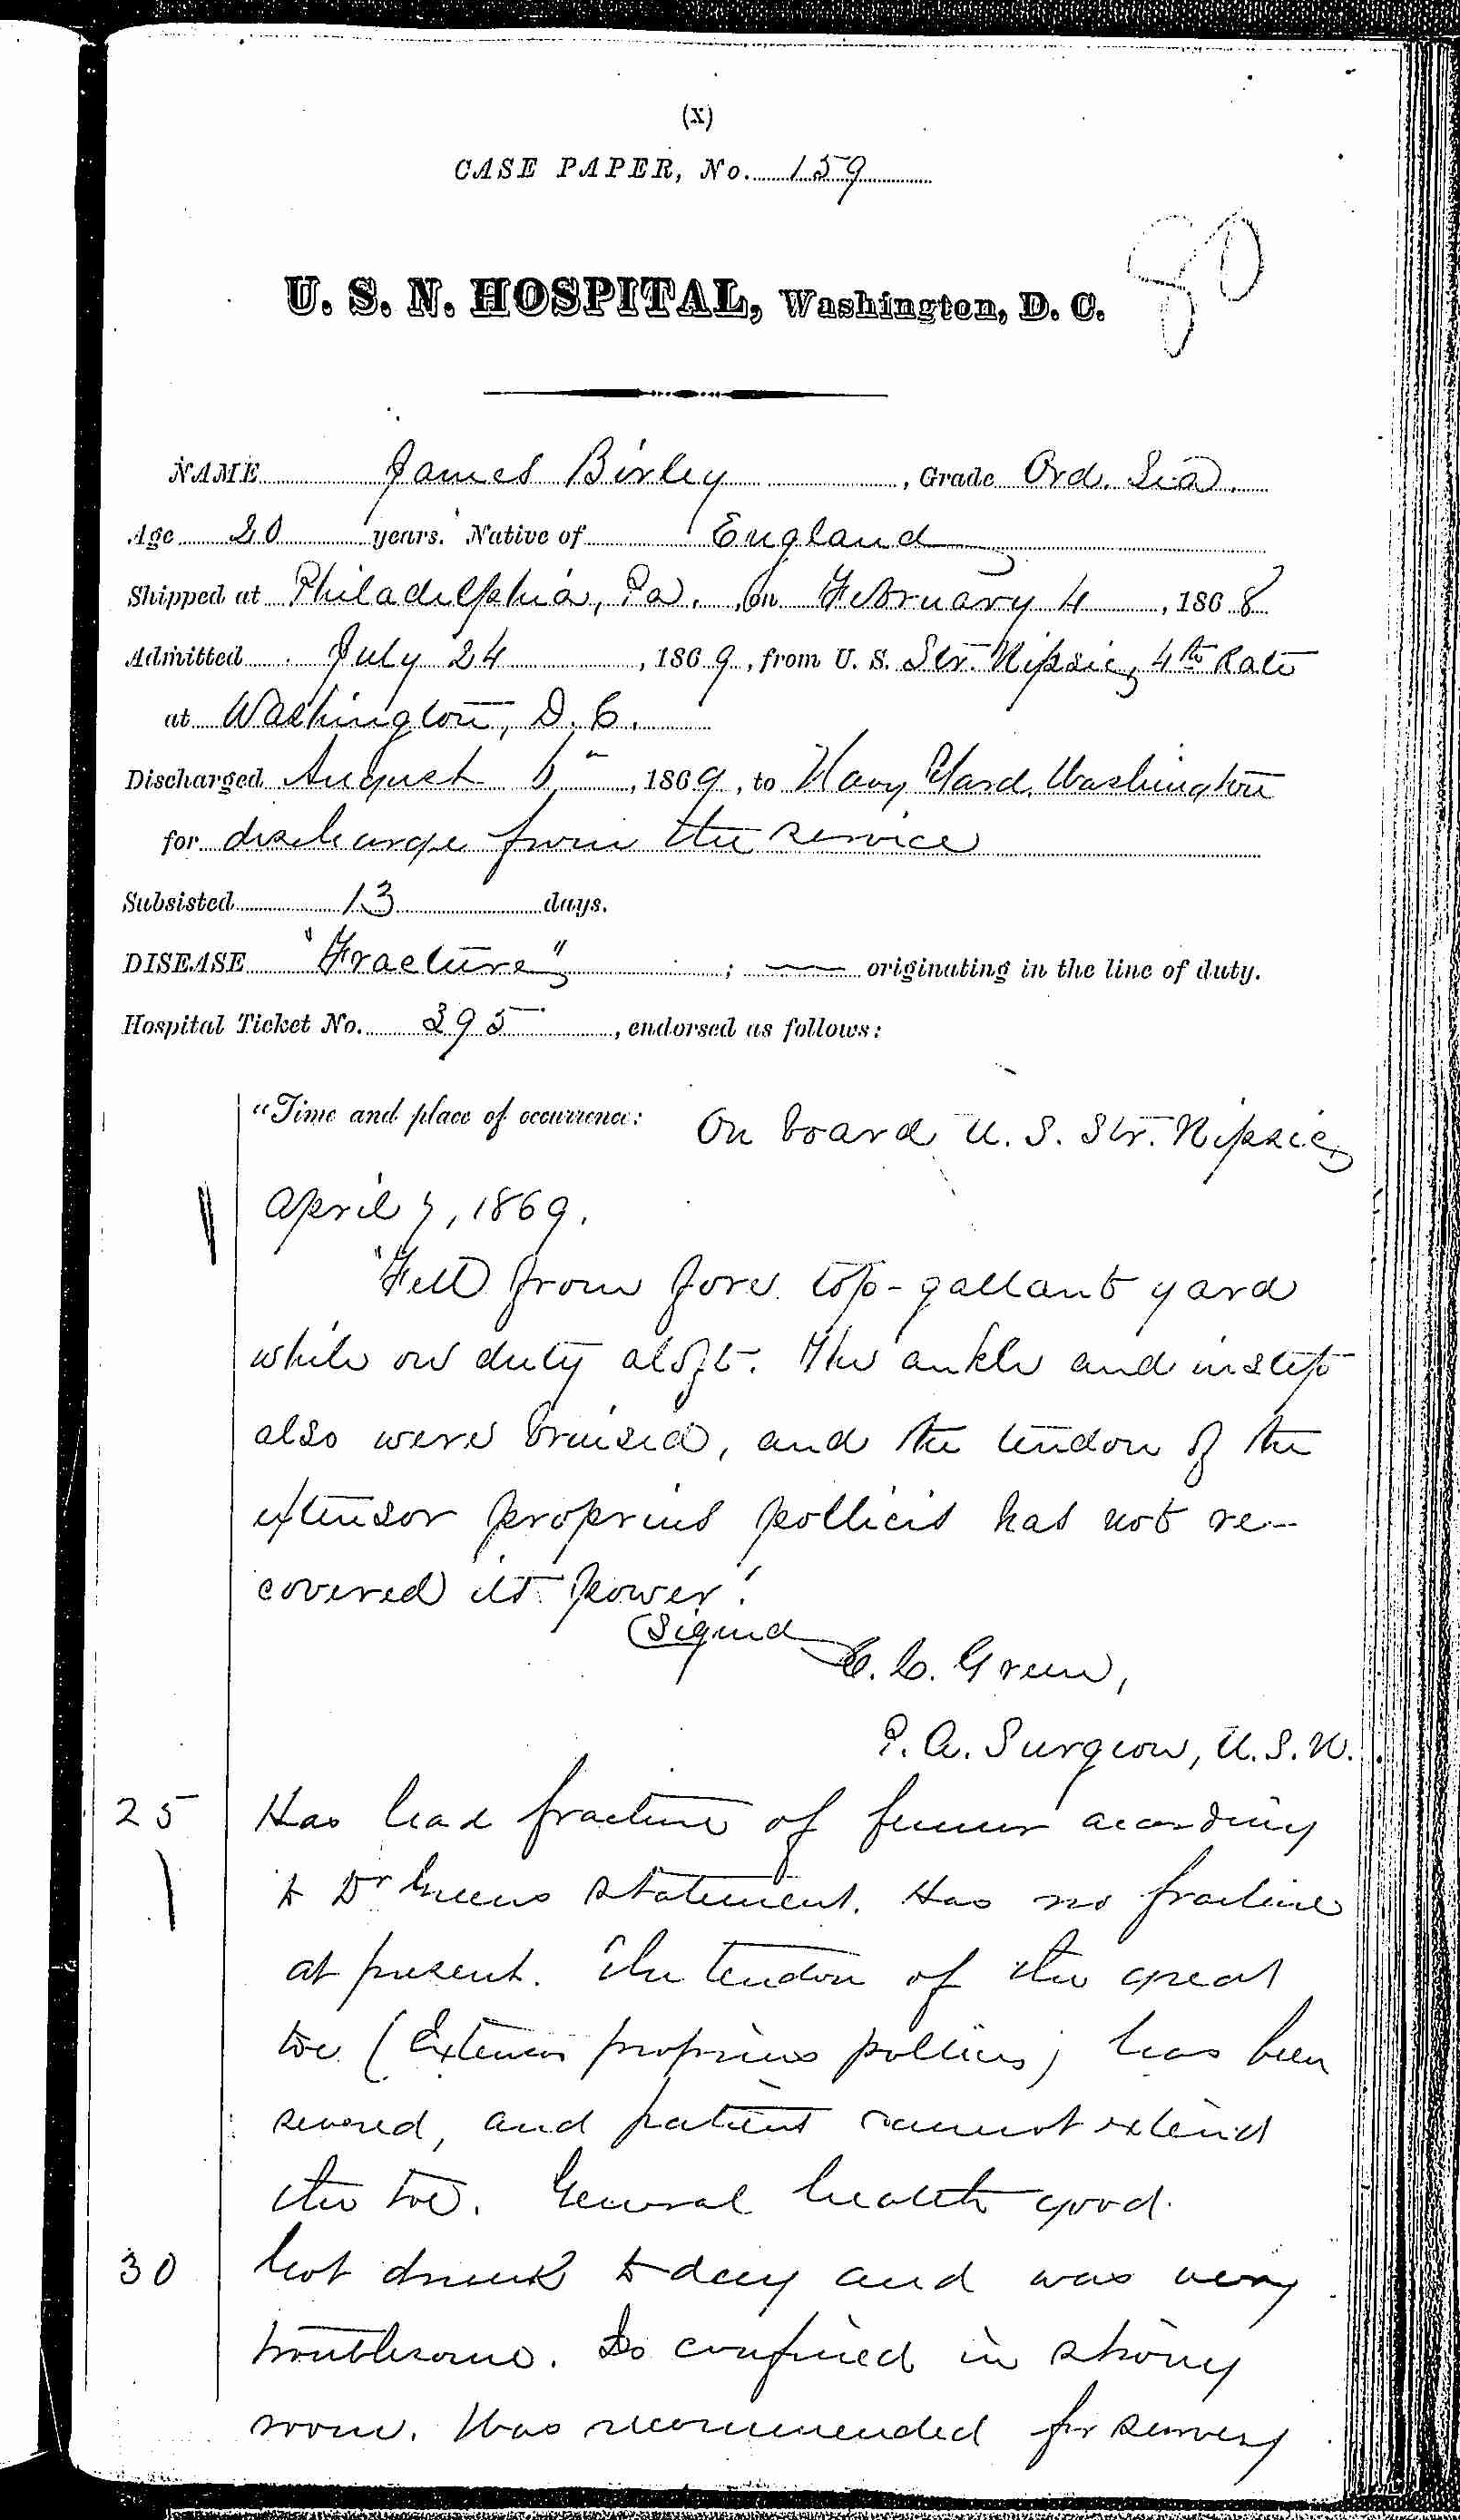 (X)
CASE PAPER, No. 159
80
U. S. N. HOSPITAL, Washington, D. C.
NAME James Birley, Grade Ord. Sea.
Age 20 years. Native of England
Shipped at Philadelphia, Pa., on February 4, 1868
Admitted July 24, 1869, from U. S. Str. Nipsic, 4th Rate
at Washington, D. C.
Discharged August 5", 1869, to Navy Yard, Washington
for discharge from the service
Subsisted 13 days.
DISEASE "Fracture"; — originating in the line of duty.
Hospital Ticket No. 395, endorsed as follows:
"Time and place of occurrence: On board U. S. Str. Nipsic,
April 7, 1869.
"Fell from fore top-gallant yard
while on duty aloft. The ankle and instep
also were bruised, and the tendon of the
extensor proprius pollicis has not re-
covered its power."
(Signed
C. C. Green,
P. A. Surgeon, U. S. N.
25 Has had fracture of femur according
to Dr Greens statement. Has no fracture
at present. The tendon of the great
toe (Extensor proprius pollicis) has been
severed, and patient cannot extend
the toe. General health good.
30 Got drunk to day and was very
troublesome. Is confined in strong
room. Was recommended for survey